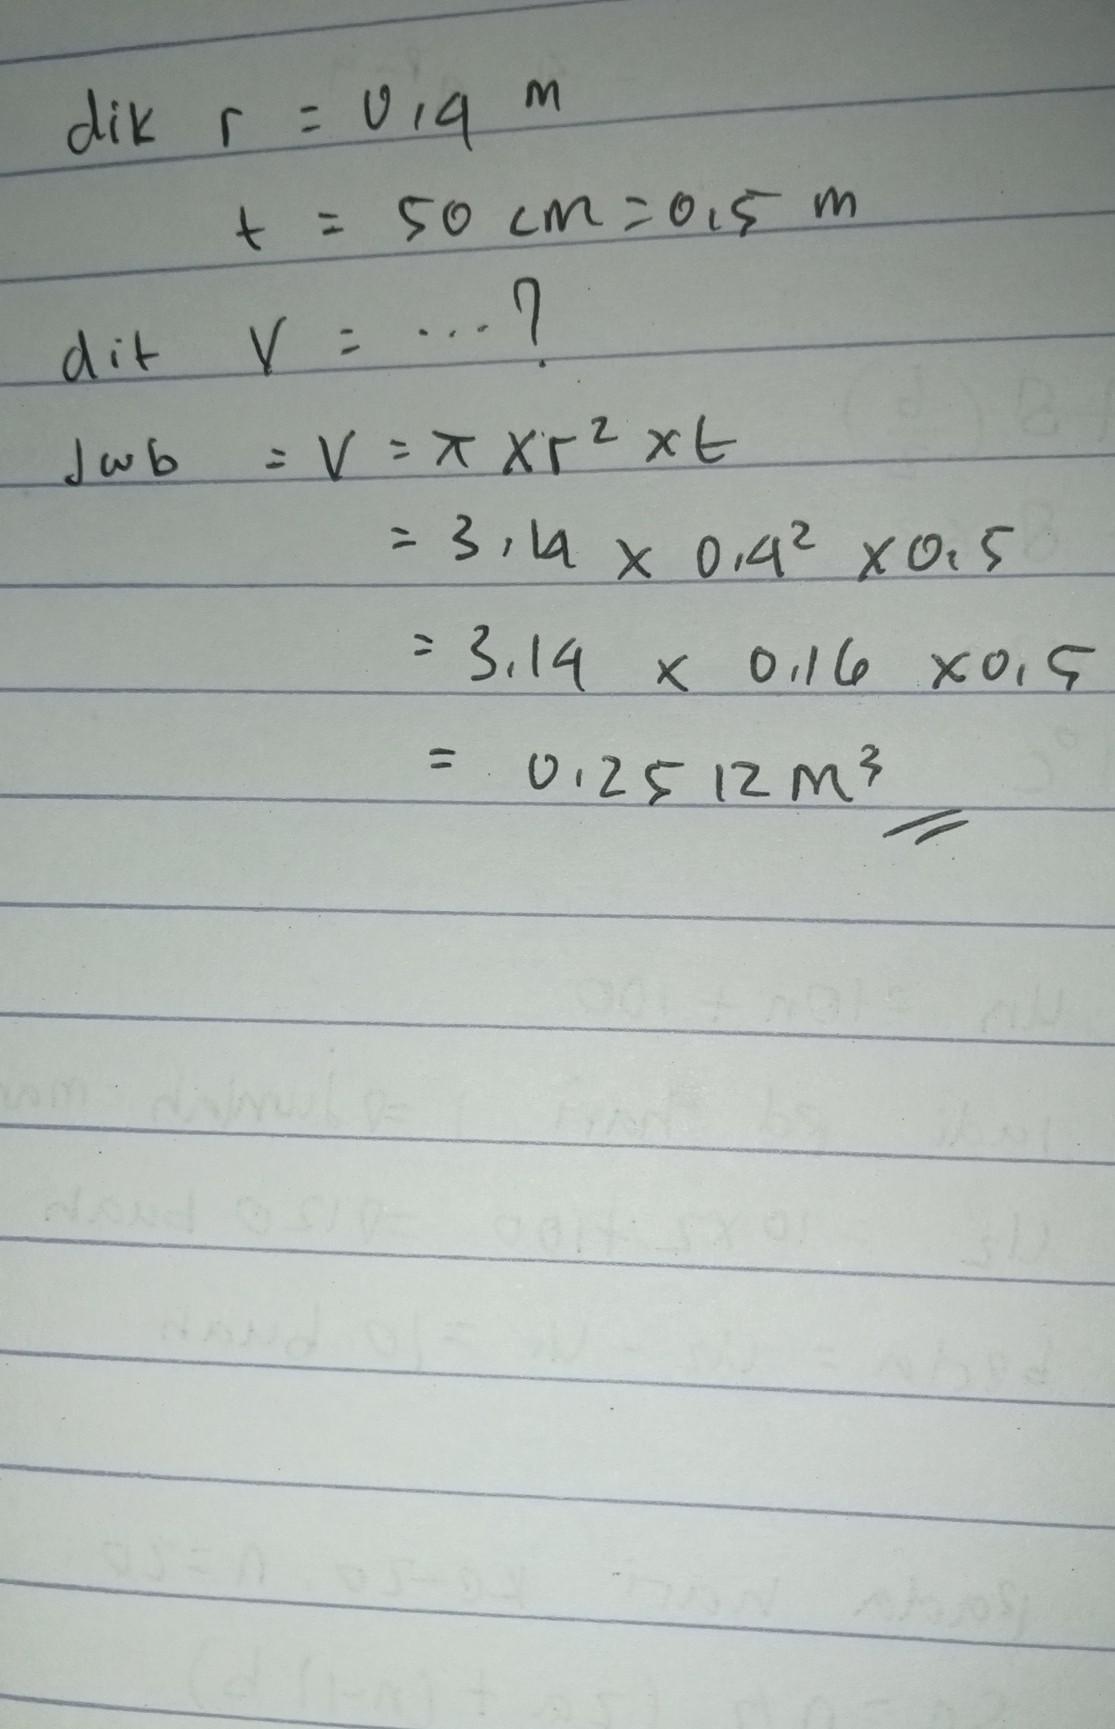 dik r = 0,4 m
t = 50 cm = 0,5 m
dit V = ...?
Jwb = V = π x r² x t
= 3,14 x 0,4² x 0,5
= 3,14 x 0,16 x 0,5
= 0,2512 m³